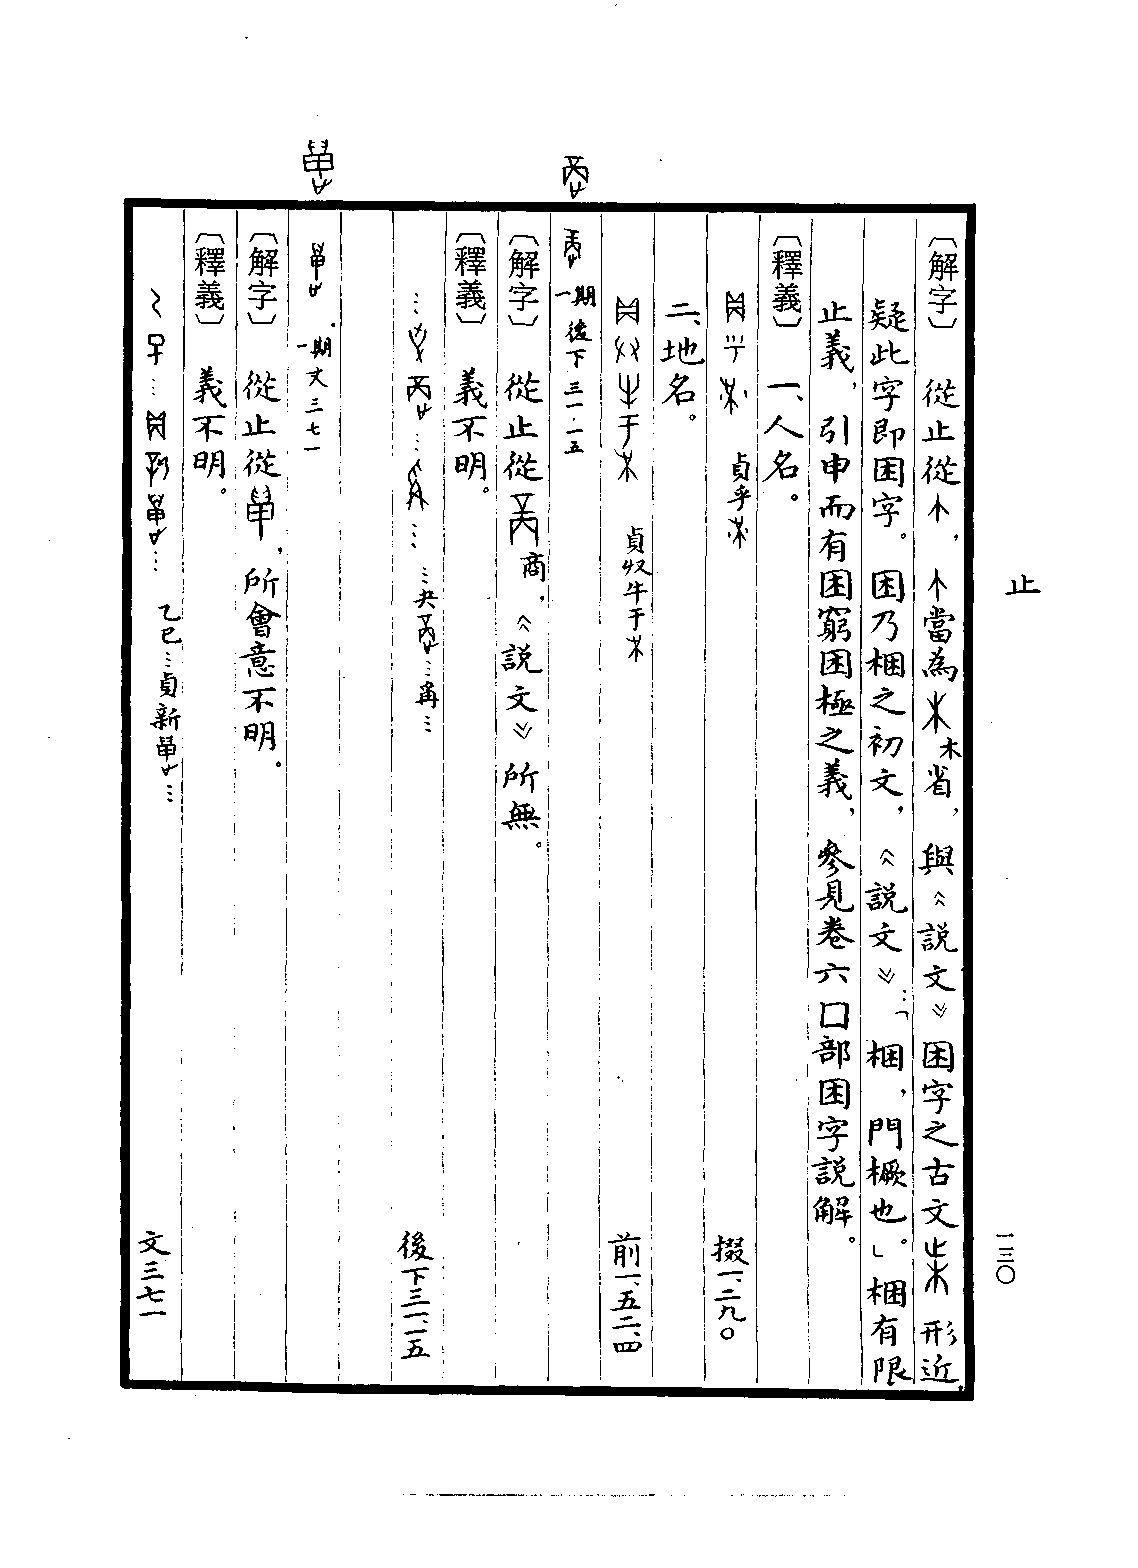 止
一三〇
〔解字〕 從止從，當為木省，與《説文》困字之古文形近
疑此字即困字。困乃梱之初文，《説文》：「梱，門橛也。」梱有限
止義，引申而有困窮困極之義，參見卷六囗部困字説解。
〔釋義〕 一、人名。
貞乎 掇一、二九〇
二、地名。
貞収牛于 前一、五二、四
一期 後下三一·一五
〔解字〕 從止從商，《説文》所無。
〔釋義〕 義不明。
…… 後下三一、一五
一期 文三七一
〔解字〕 從止從，所會意不明。
〔釋義〕 義不明。
乙巳…貞新… 文三七一